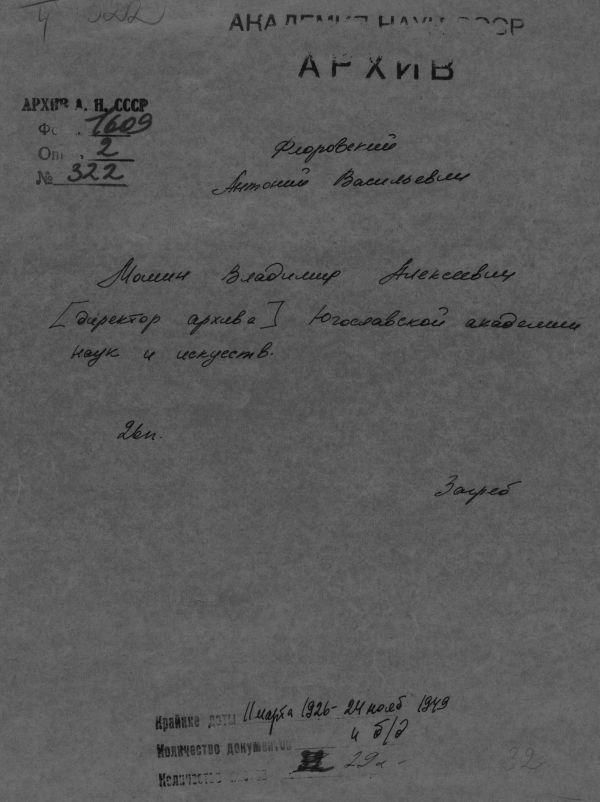 322
АКАДЕМИЯ НАУК СССР
АРХИВ
АРХИВ А. Н. СССР
Фо . 1609
Оп . 2
№ 322
Флоровский
Антоний Васильевич
Мошин Владимир Алексеевич
[директор архива] Югославской академии
наук и искусств.
Загреб
Крайние даты 11 марта 1926 - 24 нояб 1949
и б/д
Количество документов
Количество листов 29